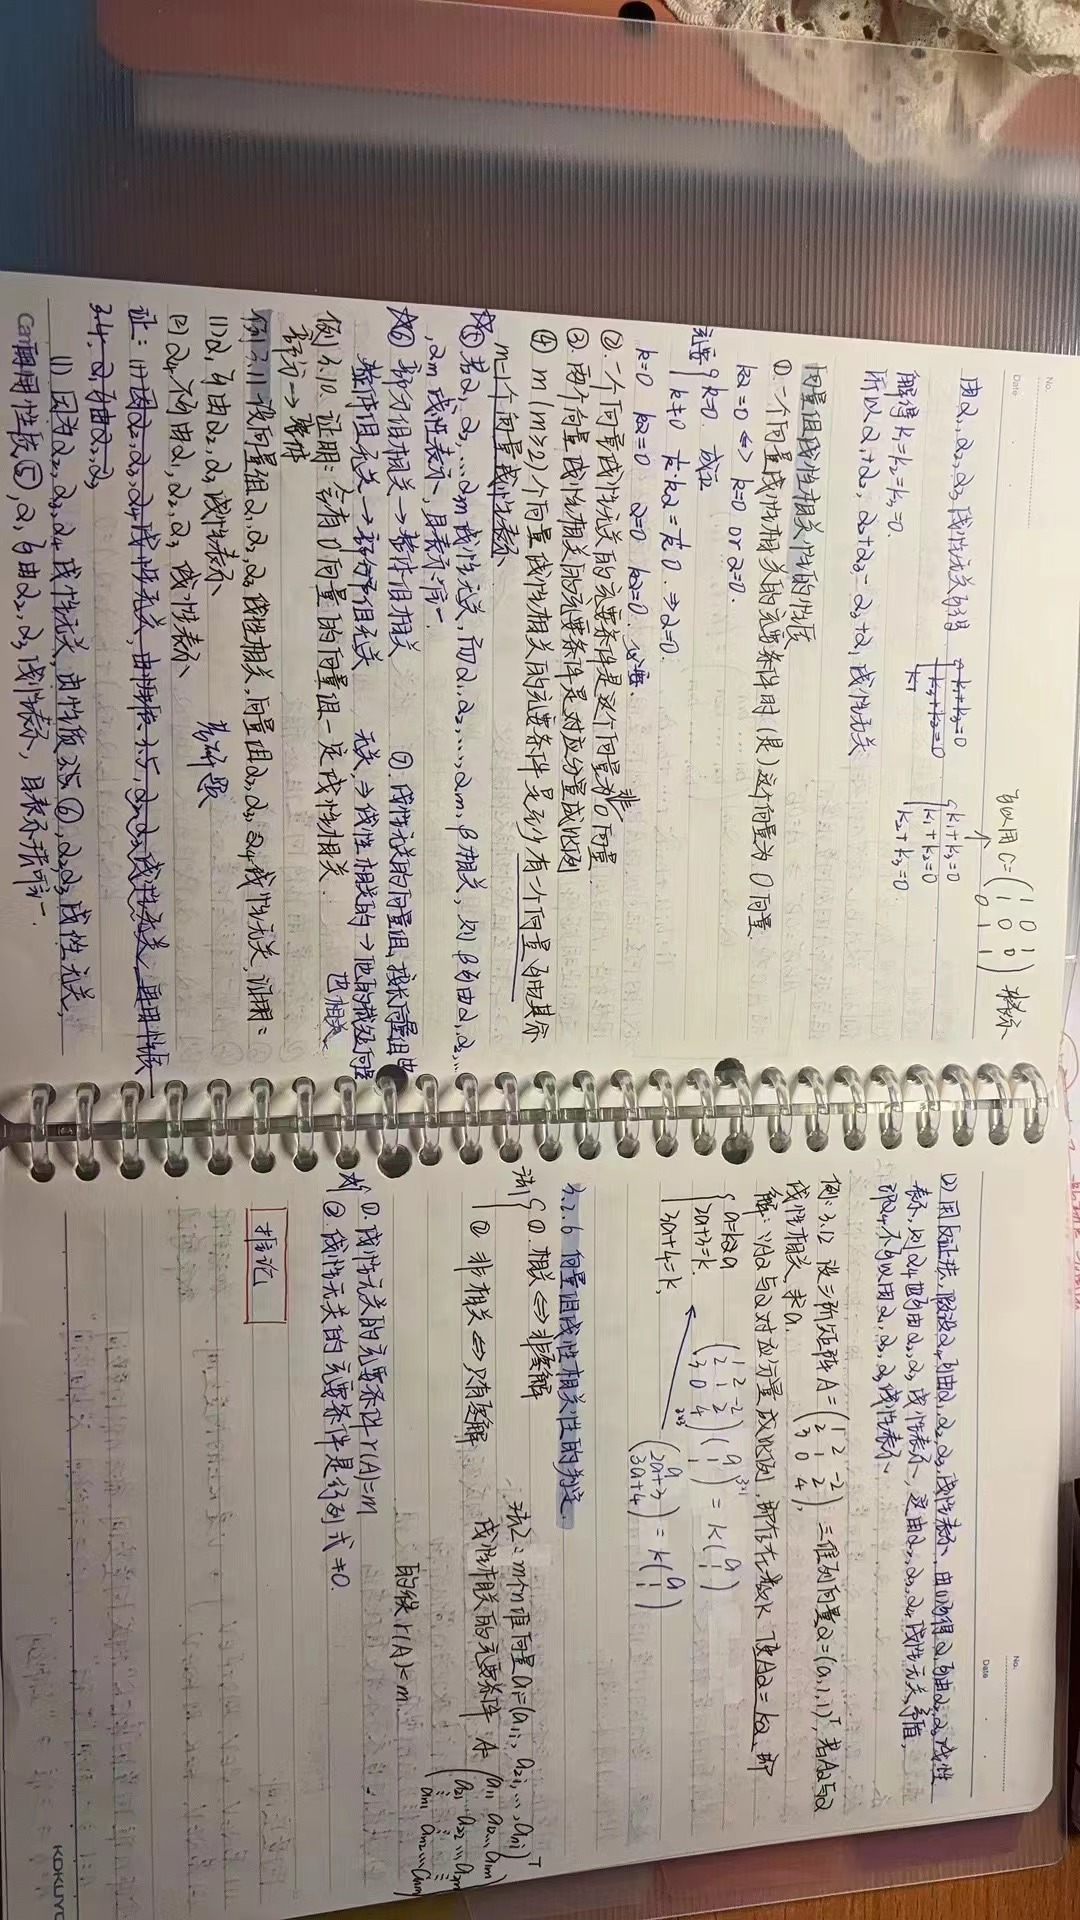 No.
Date
可以用C=(1 0 1
1 1 0
0 1 1) 来标示
由α₁,α₂,α₃线性无关可得
k₁+k₃=0
k₁+k₂=0
k₂+k₃=0.
解得k₁=k₂=k₃=0.
所以α₁+α₂, α₂+α₃, α₃+α₁线性无关
向量组线性相关性的性质
①.一个向量线性相关的充要条件时(是)这个向量为0向量
kα=0⇔k=0 or α=0.
充要 k=0. 成立
k≠0 1/k·kα=1/k·0.⇒α=0.
k=0 kα=0 α=0 kα=0.
②.一个向量线性无关的充要条件是这个向量为非0向量
③.两个向量线性相关的充要条件是对应分量成比例
④ m(m≥2)个向量线性相关的充要条件是至少有一个向量可由其余
m-1个向量线性表示
☆⑤若α₁,α₂,…αm线性无关,而α₁,α₂,…,αm,β相关,则β可由α₁,α₂,…
,αm线性表示,且表示唯一.
☆⑥ 部分组相关→整体组相关
整体组无关→部分组无关
⑦.线性无关的向量组,接长向量组也
无关,⇒线性相关的→他的截短向量
也相关
例3.10 证明:含有0向量的向量组一定线性相关.
部分→整体
例3.11 设向量组α₁,α₂,α₃线性相关,向量组α₂,α₃,α₄线性无关,证明:
(1)α₁可由α₂,α₃线性表示
(2)α₄不可由α₁,α₂,α₃线性表示
考研题
证:(1)因α₂,α₃,α₄线性无关,由性质3.5,α₂,α₃线性无关,再由性质
3.4,α₁可由α₂,α₃
(1) 因为α₂,α₃,α₄线性无关,由性质3.5⑥,α₂,α₃线性无关,
再用性质⑤,α₁可由α₂,α₃线性表示,且表示法唯一.
No.
Date
(2)用反证法,假设α₄可由α₁,α₂,α₃线性表示,由(1)可得α₁可由α₂,α₃线性
表示,则α₄也可由α₂,α₃线性表示,这由α₂,α₃,α₄线性无关矛盾,
即α₄不可以用α₁,α₂,α₃线性表示.
例:3.12 设三阶矩阵A=(1 2 -2
2 1 2
3 0 4),三维列向量α=(a,1,1)ᵀ,若Aα与α
线性相关,求a.
解:∵Aα与α对应分量成比例,即存在数k使Aα=kα,即
(1 2 -2
2 1 2
3 0 4)(a
1
1)=k(a
1
1)
3×1
3×3
(a
2a+3
3a+4)=k(a
1
1)
a=ka
2a+3=k.
3a+4=k.
3.2.6 向量组线性相关性的判定.
法1 ①.相关⇔非零解
② 非相关⇔只有零解
法2:m个n维向量αᵢ=(a₁ᵢ,a₂ᵢ,…,aₙᵢ)ᵀ
线性相关的充要条件 A=(a₁₁ a₁₂…a₁ₘ
a₂₁ a₂₂…a₂ₘ
aₙ₁ aₙ₂…aₙₘ)
的秩r(A)<m.
☆①线性无关的充要条件r(A)=m
②.线性无关的充要条件是行列式≠0.
推论
KOKUYO